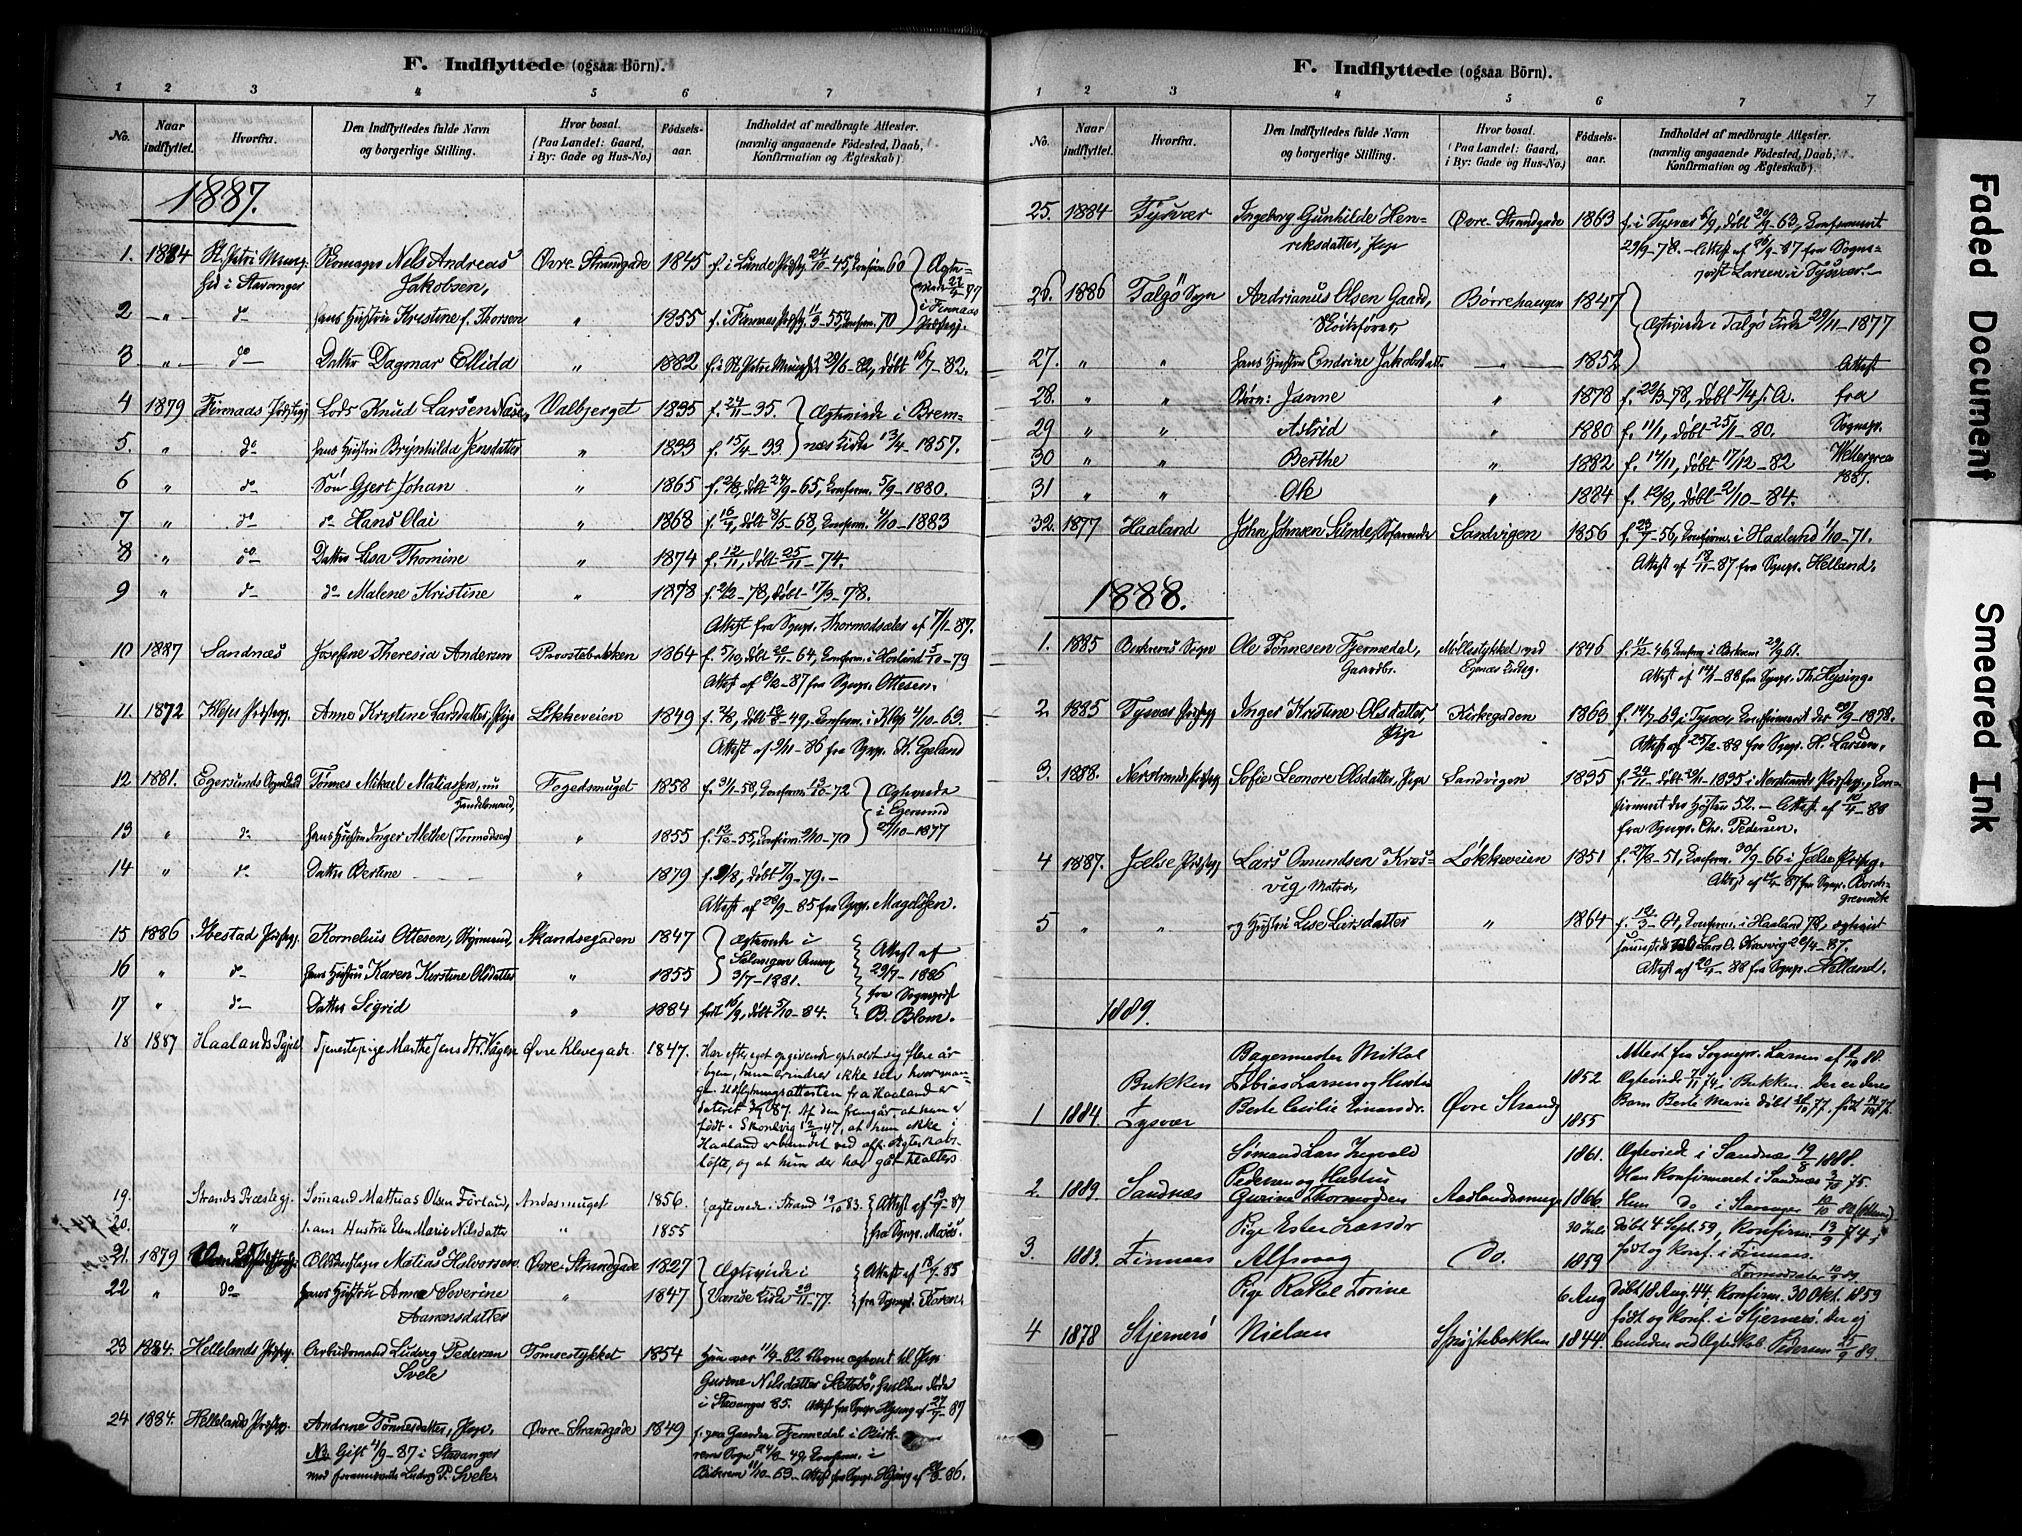 F. Indflyttede (ogsaa Börn).
1 2 3 4 5 6 7
No. Naar indflyttet. Hvorfra. Den Indflyttedes fulde Navn og borgerlige Stilling. Hvor bosat. (Paa Landet: Gaard, i By: Gade og Hus-No.) Fødsels-aar. Indholdet af medbragte Attester. (navnlig angaaende Födested, Daab, Konfirmation og Ægteskab)
1887.
1. 1884 St. Petri Menig- Skomager Nils Andreas Øvre Strandgade 1845 f. i Lunde Præstg. 24/10 45, Konfirm. 60
hed i Stavanger Jakobsen,
2 — " — do hans Hustru Kristine f. Thorsen " 1855 f. i Finnaas 11/3 - 55, Konfirm. 70
3 — " — do Datter Dagmar Ellida " 1882 f. i St. Petri 29/6 - 82, døbt 16/7 - 82.
4 1879 Finnaas Præstegj Lods Knud Larsen Valbjerget 1835 f. 24/11 - 35. Ægteviede i Brem-
5. " do hans Hustru Brynhilda Jensdatter " 1833 f. 15/4 - 33. næs Kirke 13/4 - 1857.
6 " do Søn Gjert Johan " 1865 f. 2/8, døbt 24/9 - 65, Konfirm. 5/9 - 1880.
7 " do do Hans Olai " 1868 f. døbt 8/5 - 68, Konfirm. 7/10 - 1883
8 " do Datter Lisa Thomine " 1874 f. 12/11, døbt 25/11 - 74.
9 " do do Malene Kristine " 1878 f. 2/2 - 78, døbt 17/3 - 78.
Attest fra Sgnpr. Thormodsæter af 7/1 - 87.
10 1887 Sandnæs Josefine Theresia Andersen Provstebakken 1864 f. 5/10, døbt 20/11 - 64, Konfirm. i Høiland 5/10 - 79
Attest af 8/2 - 87 fra Sgnpr. Ottesen.
11. 1872 Kleps Præstegj. Anne Kristine Larsdatter, Pige Løkkeveien 1849 f. 2/8, døbt 12/8 - 49, Konfirm. i Klep 4/10 - 63.
Attest af 9/11 - 86 fra Sgnpr. K. Egeland
12 1881. Egersunds Tønnes Mikael Matiassen, nu Fogedsmuget 1858 f. 3/1 - 58, Konfirm. 13/10 - 72 Ægteviede
Handelsmand, i Egersund
13 " do hans Hustru Inger Methe (Tormodsen) " 1855 f. 12/12 - 55, Konfirm. 9/10 - 70 21/10 - 1877
14 " do Datter Bertine " 1879 f. 8/8, døbt 7/9 - 79. -
Attest af 28/9 - 85 fra Sgnpr. Magelssen.
15 1886 Ibestad Præstegj. Kornelius Ottesen, Styrmand, Skandsegaden 1847 Ægteviede i Attest af
16 " do hans Hustru Karen Kerstine Olsdatter " 1855 Salangen 3/7 - 1881. 29/7 - 1886
17 " do Datter Sigrid " 1884 født 16/9, døbt 5/10 - 84. fra Sogneprst B. Blom.
18 1887 Haalands Pgjeld Tjenestepige Marthe Jensdtr. Vågen Øvre Klevegade. 1847. Har efter eget opgivende opholdt sig flere år
i byen, hun erindrer ikke selv hvor man-
ge. Udflytningsattesten fra Haaland er
dateret 87. Af den fremgår, at hun er
født i Skonevig 47, at hun ikke i
Haaland er bundet ved off. ægteskabs-
løfte, og at hun der har gåt til alters
19. Strands Præstegj. Sømand Mathias Olsen Førland, Andasmuget 1856. ægteviede i Strand 19/10 83. Attest af 87
20. " hans Hustru Elen Marie Nilsdatter " 1855 fra Sgnpr. Moses.
21. 1879 Matias Halvorsen Øvre Strandgade 1827 Ægteviede i Attest af 85
22 " do hans Hustru Anne Severine " 1847 Vanse Kirke 77. fra Sgnpr.
Aanensdatter
23 1884. Hellelands Præstegj. Arbeidsmand Ludvig Pedersen Tomsestykket 1854 Han var 11/9 - 82
Svele Gurine Nilsdatter Slettebø, hvilken døde
i Stavanger 85. Attest fra Sgnpr. Hysing af 27/9 - 87
24 1884. Hellelands Præstegj. Andrine Tønnesdatter, Pige. Øvre Strandgade 1849 f. paa Gaarden Fjermedal i Birk-
NB. Gift 4/9 - 87 i Stavanger rems Sogn 24/3 - 49. Konfirm. i
med forannævnte Ludvig P. Svele Birkrem 11/10 - 63 - Attest fra Sgnpr. Hysing af 86.
F. Indflyttede (ogsaa Börn).
7
1 2 3 4 5 6 7
No. Naar indflyttet. Hvorfra. Den Indflyttedes fulde Navn og borgerlige Stilling. Hvor bosat. (Paa Landet: Gaard, i By: Gade og Hus-No.) Fødsels-aar. Indholdet af medbragte Attester. (navnlig angaaende Födested, Daab, Konfirmation og Ægteskab)
25. 1884 Tysvær Ingeborg Gunhilde Hen- Øvre Strandgade 1863 f. i Tysvær 6/9, døbt 20/9 - 63, Konfirmeret
riksdatter, Pige 29/9 - 78. - Attest af 87 fra Sogne-
prest Larsen i Tysvær.
26. 1886 Talgø Sogn Andrianus Olsen Gaard, Børrehaugen 1847 Ægteviede i Talgø Kirke 29/11 - 1877
Skøitefører
27. " " hans Hustru Endrine Jakobsdatt. " 1852 Attest
28. " " Børn: Janne " 1878 f. 22/3 - 78, døbt 7/4 s. A. fra
29 " " Astrid " 1880 f. 11/1, døbt 25/1 - 80. Sognepr.
30 " " Berthe " 1882 f. 17/11, døbt 17/12 - 82 Wettergren
31 " " Ole " 1884 f. 12/8, døbt 21/10 - 84. 1887.
32. 1877 Haaland John Johnsen Sunde, Søfarende Sandvigen 1856 f. 23/7 - 56, Konfirm. i Haaland 1/10 - 71.
Attest af 18/11 - 87 fra Sgnpr. Helland.
1888.
1. 1885 Birkrems Sogn Ole Tønnesen Fjermedal, Møllestykket ved 1846 f. 11/12 - 46, Konfirm. i Birkrem 29/9 61.
Gaardbr. Egenæs Attest af 14/1 - 88 fra Sgnpr. Th. Hysing.
2. 1885 Tysvær Præstegj Inger Kristine Olsdatter, Kirkegaden 1863 f. 14/7 - 63 i Tysvær, Konfirmeret der 29/9 - 1878.
Pige Attest af 25/2 - 88 fra Sgnpr. H. Larsen.
3. 1888. Nerstrands Præstegj Sofie Leonore Olsdatter, Pige Sandvigen 1835 f. 24/11 - døbt 29/11 - 1835 i Nerstrands Præstegj., Kon-
firmeret der Høsten 52. - Attest af 10/4 - 88
fra Sgnpr. Chr. Pedersen.
4 1887. Jelse Præstegj Lars Omundsen Kros- Løkkeveien 1851 f. 27/3 - 51, Konfirm. 30/9 - 66 i Jelse Præsteg.
vig, Matros, Attest af 87 fra Sgnpr. Borch-
grevink
5 " " og Hustru Lise Larsdatter " 1864 f. 12/3 - 64, Konfirm. i Haaland 78, ægteviet
Lars O. Krosvig 20/4 - 87.
Attest af 20/4 - 88 fra Sgnpr. Helland.
1889.
Bagermester Mikal Attest fra Sognepr. Larsen af 88.
Bukken Tobias Larsen og Hustru 1852 Ægteviede 7/11 74 i Bukken. Der er deres
1 1884. Tysvær Berte Cecilie Einarsdr. Øvre Strandg 1855 Barn Berte Marie døbt 77, født 77.
Sømand Lars Ingvald 1861. Ægteviede i Sandnæs 19/8 1888.
2. 1889. Sandnæs Pedersen og Hustru Aadlandsmug Han konfirmeret i Sandnæs 3/10 75.
Gurine Thormodsen 1866. Hun do i Stavanger 10/10 80
Pige Ester Larsdr 30 Juli Døbt 4 Sept. 59, konfirm. 13/9 74,
3. 1883. Finnaas Alfsvaag do. 1859 født og konf. i Finnaas.
Tormodsæter 10/9 89
Pige Rakel Torine 6 Aug Døbt 18 Aug. 44, konfirm. 30 Okt. 1859
4 1878 Stjernerö Nielsen Sprøjtebakken 1844. født og konf. i Stjernerö. Der ej
bunden ved Ægteskab. Pedersen 25/9 89.
Faded Document
Smeared Ink